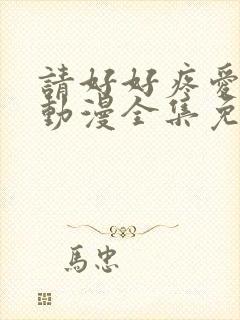 請好好疼愛
動漫全集免
馬忠